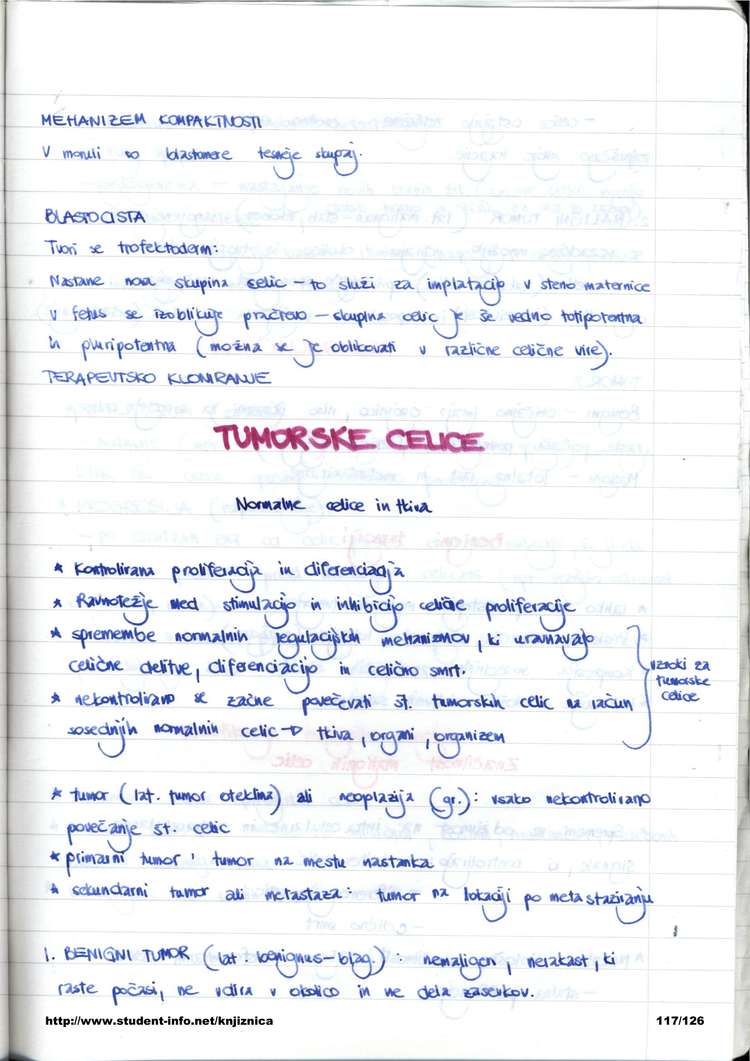 MEHANIZEM KOMPAKTNOSTI
V moruli so blastomere tesneje skupaj.
BLASTOCISTA
Tvori se trofektoderm:
Nastane nova skupina celic – to služi za implatacijo v steno maternice
v fetus se izoblikuje pračrevo – skupina celic je še vedno totipotentna
in pluripotentna (možna se je oblikovati v različne celične vire).
TERAPEVTSKO KLONIRANJE
TUMORSKE CELICE
Normalne celice in tkiva
* Kontrolirana proliferacija in diferenciacija
* Ravnotežje med stimulacijo in inhibicijo celične proliferacije
* spremembe normalnih regulacijskih mehanizmov, ki uravnavajo
celične delitve, diferenciacijo in celično smrt.
* nekontrolirano se začne povečevati št. tumorskih celic na račun
sosednjih normalnih celic → tkiva, organi, organizem
vzroki za
tumorske
celice
* tumor (lat. tumor oteklina) ali neoplazija (gr.): vsako nekontrolirano
povečanje št. celic
* primarni tumor: tumor na mestu nastanka
* sekundarni tumor ali metastaza: tumor na lokaciji po metastaziranju
1. BENIGNI TUMOR (lat: benignus – blag.): nemaligen, nerakast, ki
raste počasi, ne vdira v okolico in ne dela zasevkov.
http://www.student-info.net/knjiznica 117/126